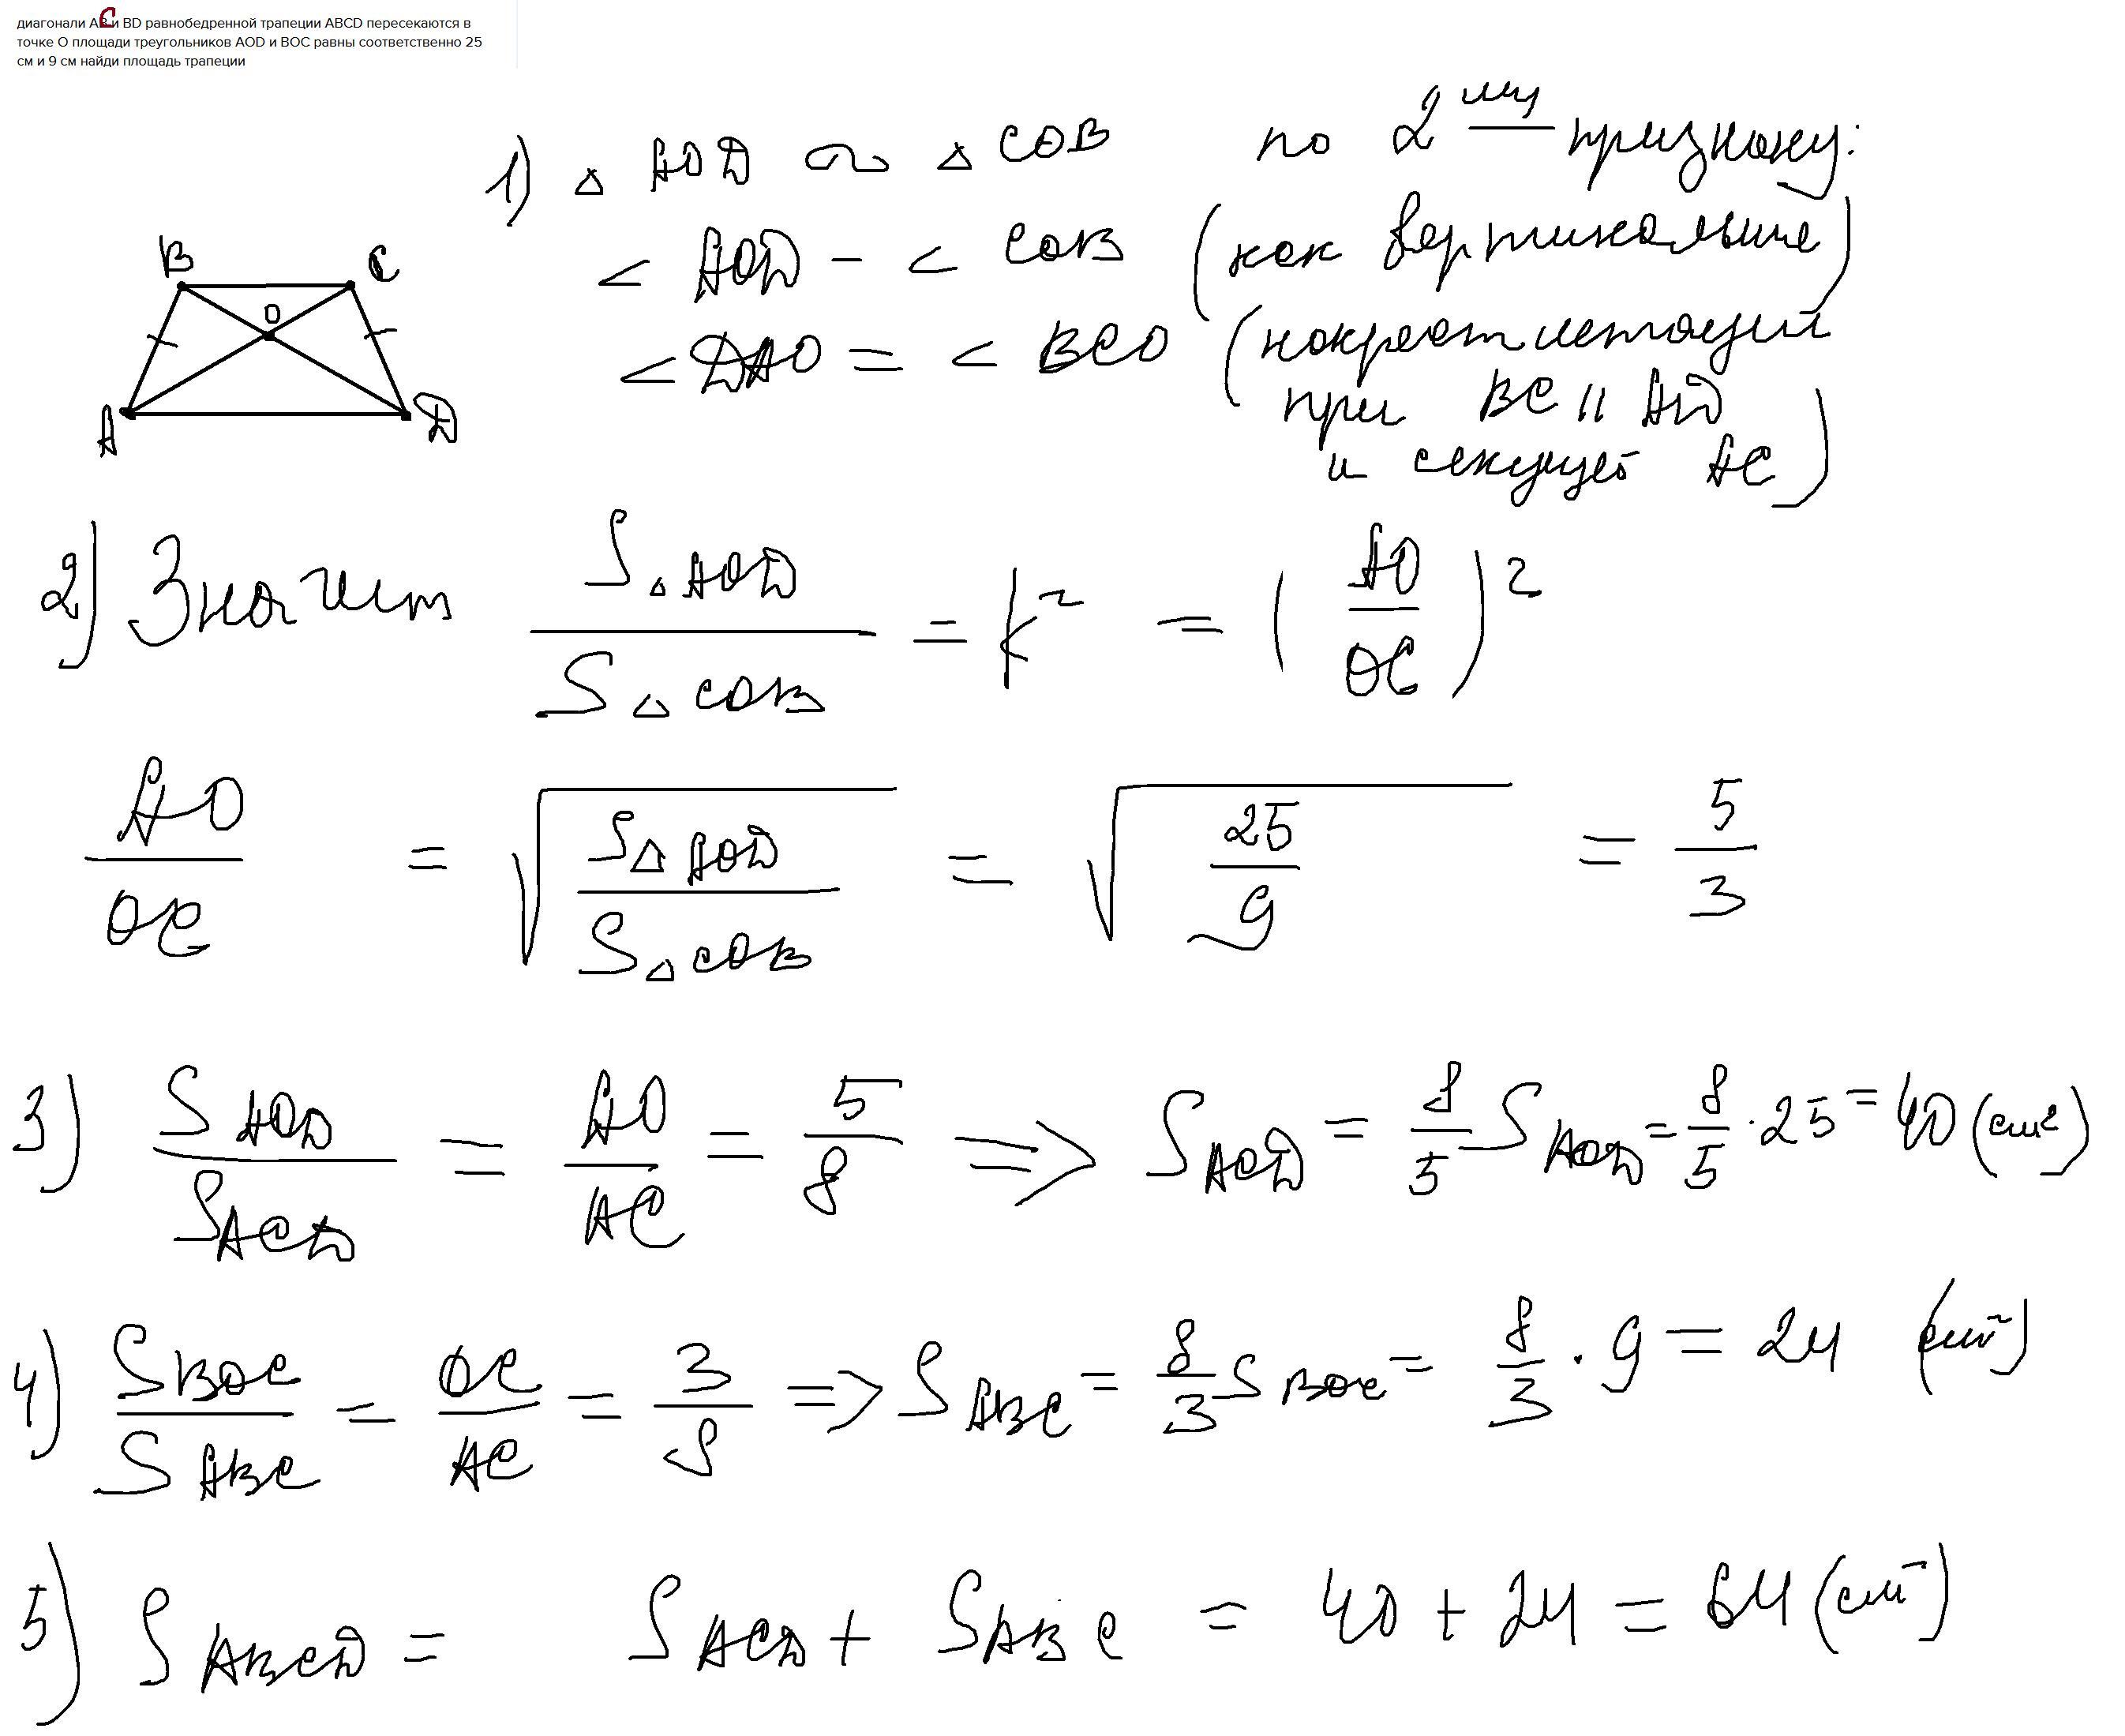 диагонали AC и BD равнобедренной трапеции ABCD пересекаются в
точке O площади треугольников AOD и BOC равны соответственно 25
см и 9 см найди площадь трапеции
1) △ AOD ∾ △ COB по 2ᵐ признаку:
< AOD - < COB (как вертикальные)
< DAO = < BCO (накрест лежащие
при BC || AD
и секущей AC)
B C
O
A D
2) Значит S△AOD / S△COB = k² = (AO / OC)²
AO / OC = √(S△AOD / S△COB) = √(25 / 9) = 5/3
3) S AOD / S ACD = AO / AC = 5/8 => S ACD = 8/5 S AOD = 8/5 · 25 = 40 (см²)
4) S BOC / S ABC = OC / AC = 3/8 => S ABC = 8/3 S BOC = 8/3 · 9 = 24 (см²)
5) S ABCD = S ACD + S ABC = 40 + 24 = 64 (см²)